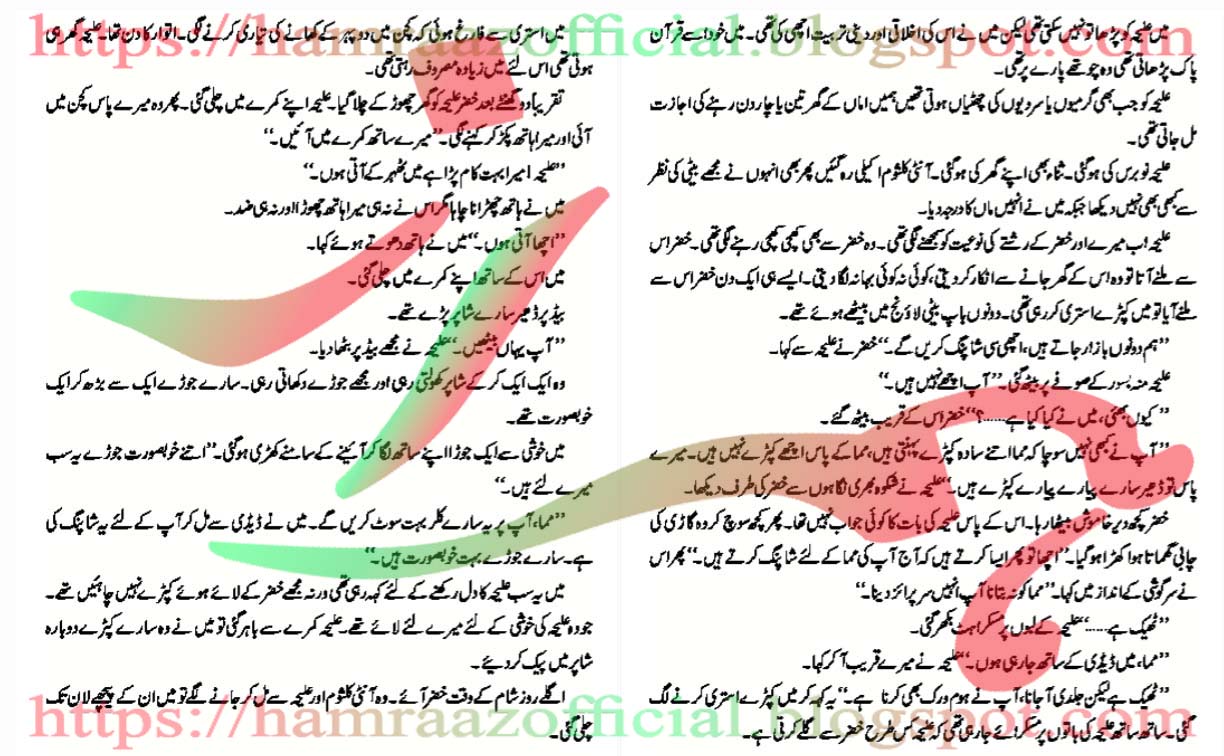 https://hamraazofficial.blogspot.com
میں علیحہ کو پڑھا تو نہیں سکتی تھی لیکن میں نے اس کی اخلاقی اور دینی تربیت اچھی کی تھی۔ میں خود اسے قرآن
پاک پڑھاتی تھی وہ چوتھے پارے پر تھی۔
علیحہ کو جب بھی گرمیوں یا سردیوں کی چھٹیاں ہوتی تھیں ہمیں اماں کے گھر تین یا چار دن رہنے کی اجازت
مل جاتی تھی۔
علیحہ نو برس کی ہوگئی۔ ثناء بھی اپنے گھر کی ہوگئی۔ آنٹی کلثوم اکیلی رہ گئیں پھر بھی انہوں نے مجھے بیٹی کی نظر
سے کبھی بھی نہیں دیکھا جبکہ میں نے انہیں ماں کا درجہ دیا۔
علیحہ اب میرے اور خضر کے رشتے کی نوعیت کو سمجھنے لگی تھی۔ وہ خضر سے بھی کھچی کھچی رہنے لگی تھی۔ خضر اس
سے ملنے آتا تو وہ اس کے گھر جانے سے انکار کر دیتی، کوئی نہ کوئی بہانہ لگا دیتی۔ ایسے ہی ایک دن خضر اس سے
ملنے آیا تو میں کپڑے استری کر رہی تھی۔ وہ دونوں باپ بیٹی لاؤنج میں بیٹھے ہوئے تھے۔
’’ہم دونوں بازار جاتے ہیں، اچھی سی شاپنگ کریں گے۔‘‘ خضر نے علیحہ سے کہا۔
علیحہ منہ بسور کے صوفے پر بیٹھ گئی۔ ’’آپ اچھے نہیں ہیں۔‘‘
’’کیوں بھئی، میں نے کیا کیا ہے......؟‘‘ خضر اس کے قریب بیٹھ گئے۔
’’آپ نے کبھی نہیں سوچا کہ مما اتنے سادہ کپڑے پہنتی ہیں، مما کے پاس اچھے کپڑے نہیں ہیں۔ میرے
پاس تو ڈھیر سارے پیارے پیارے کپڑے ہیں۔‘‘ علیحہ نے شکوہ بھری نگاہوں سے خضر کی طرف دیکھا۔
خضر کچھ دیر خاموش بیٹھا رہا۔ اس کے پاس علیحہ کی بات کا کوئی جواب نہیں تھا۔ پھر کچھ سوچ کر وہ گاڑی کی
چابی گھماتا ہوا کھڑا ہوگیا۔ ’’اچھا تو پھر ایسا کرتے ہیں کہ آج آپ کی مما کے لئے شاپنگ کرتے ہیں۔‘‘ پھر اس
نے سرگوشی کے انداز میں کہا۔ ’’مما کو نہ بتانا آپ انہیں سرپرائز دینا۔‘‘
’’ٹھیک ہے......‘‘ علیحہ کے لبوں پر مسکراہٹ بکھر گئی۔
’’مما، میں ڈیڈی کے ساتھ جارہی ہوں۔‘‘ علیحہ نے میرے قریب آ کر کہا۔
’’ٹھیک ہے لیکن جلدی آجانا، آپ نے ہوم ورک بھی کرنا ہے۔‘‘ یہ کہہ کر میں کپڑے استری کرنے لگ
گئی۔ ساتھ ساتھ علیحہ کی باتوں پر مسکرائے جارہی تھی کہ علیحہ کس طرح خضر سے گلے کرتی ہے۔
میں استری سے فارغ ہوئی کہ کچن میں دوپہر کے کھانے کی تیاری کرنے لگی۔ اتوار کا دن تھا۔ علیحہ گھر ہی
ہوتی تھی اس لئے میں زیادہ مصروف رہتی تھی۔
تقریباً دو گھنٹے بعد خضر علیحہ کو گھر چھوڑ کے چلا گیا۔ علیحہ اپنے کمرے میں چلی گئی۔ پھر وہ میرے پاس کچن میں
آئی اور میرا ہاتھ پکڑ کر کہنے لگی۔ ’’میرے ساتھ کمرے میں آئیں۔‘‘
’’علیحہ! میرا بہت کام پڑا ہے میں ٹھہر کے آتی ہوں۔‘‘
میں نے ہاتھ چھڑانا چاہا مگر اس نے نہ ہی میرا ہاتھ چھوڑا اور نہ ہی ضد۔
’’اچھا آتی ہوں۔‘‘ میں نے ہاتھ دھوتے ہوئے کہا۔
میں اس کے ساتھ اپنے کمرے میں چلی گئی۔
بیڈ پر ڈھیر سارے شاپر پڑے تھے۔
’’آپ یہاں بیٹھیں۔‘‘ علیحہ نے مجھے بیڈ پر بٹھا دیا۔
وہ ایک ایک کر کے شاپر کھولتی رہی اور مجھے جوڑے دکھاتی رہی۔ سارے جوڑے ایک سے بڑھ کر ایک
خوبصورت تھے۔
میں خوشی سے ایک جوڑا اپنے ساتھ لگا کر آئینے کے سامنے کھڑی ہوگئی۔ ’’اتنے خوبصورت جوڑے یہ سب
میرے لئے ہیں۔‘‘
’’مما، آپ پر یہ سارے کلر بہت سوٹ کریں گے۔ میں نے ڈیڈی سے مل کر آپ کے لئے یہ شاپنگ کی
ہے۔ سارے جوڑے بہت خوبصورت ہیں۔‘‘
میں یہ سب علیحہ کا دل رکھنے کے لئے کہہ رہی تھی ورنہ مجھے خضر کے لائے ہوئے کپڑے نہیں چاہئیں تھے۔
جو وہ علیحہ کی خوشی کے لئے میرے لئے لائے تھے۔ علیحہ کمرے سے باہر گئی تو میں نے وہ سارے کپڑے دوبارہ
شاپر میں پیک کر دیئے۔
اگلے روز شام کے وقت خضر آئے۔ وہ آنٹی کلثوم اور علیحہ سے مل کر جانے لگے تو میں ان کے پیچھے لان تک
چلی گئی۔
https://hamraazofficial.blogspot.com